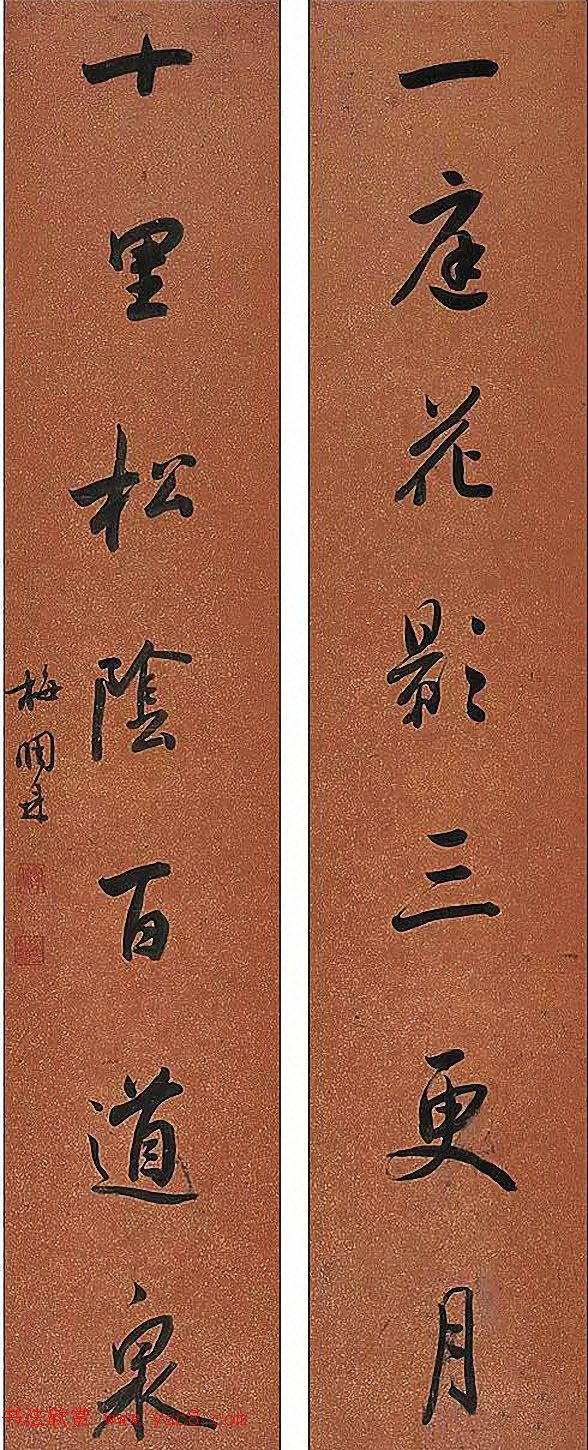 一庭花影三更月
十里松陰百道泉
梅調鼎
书法欣赏 www.yac8.com